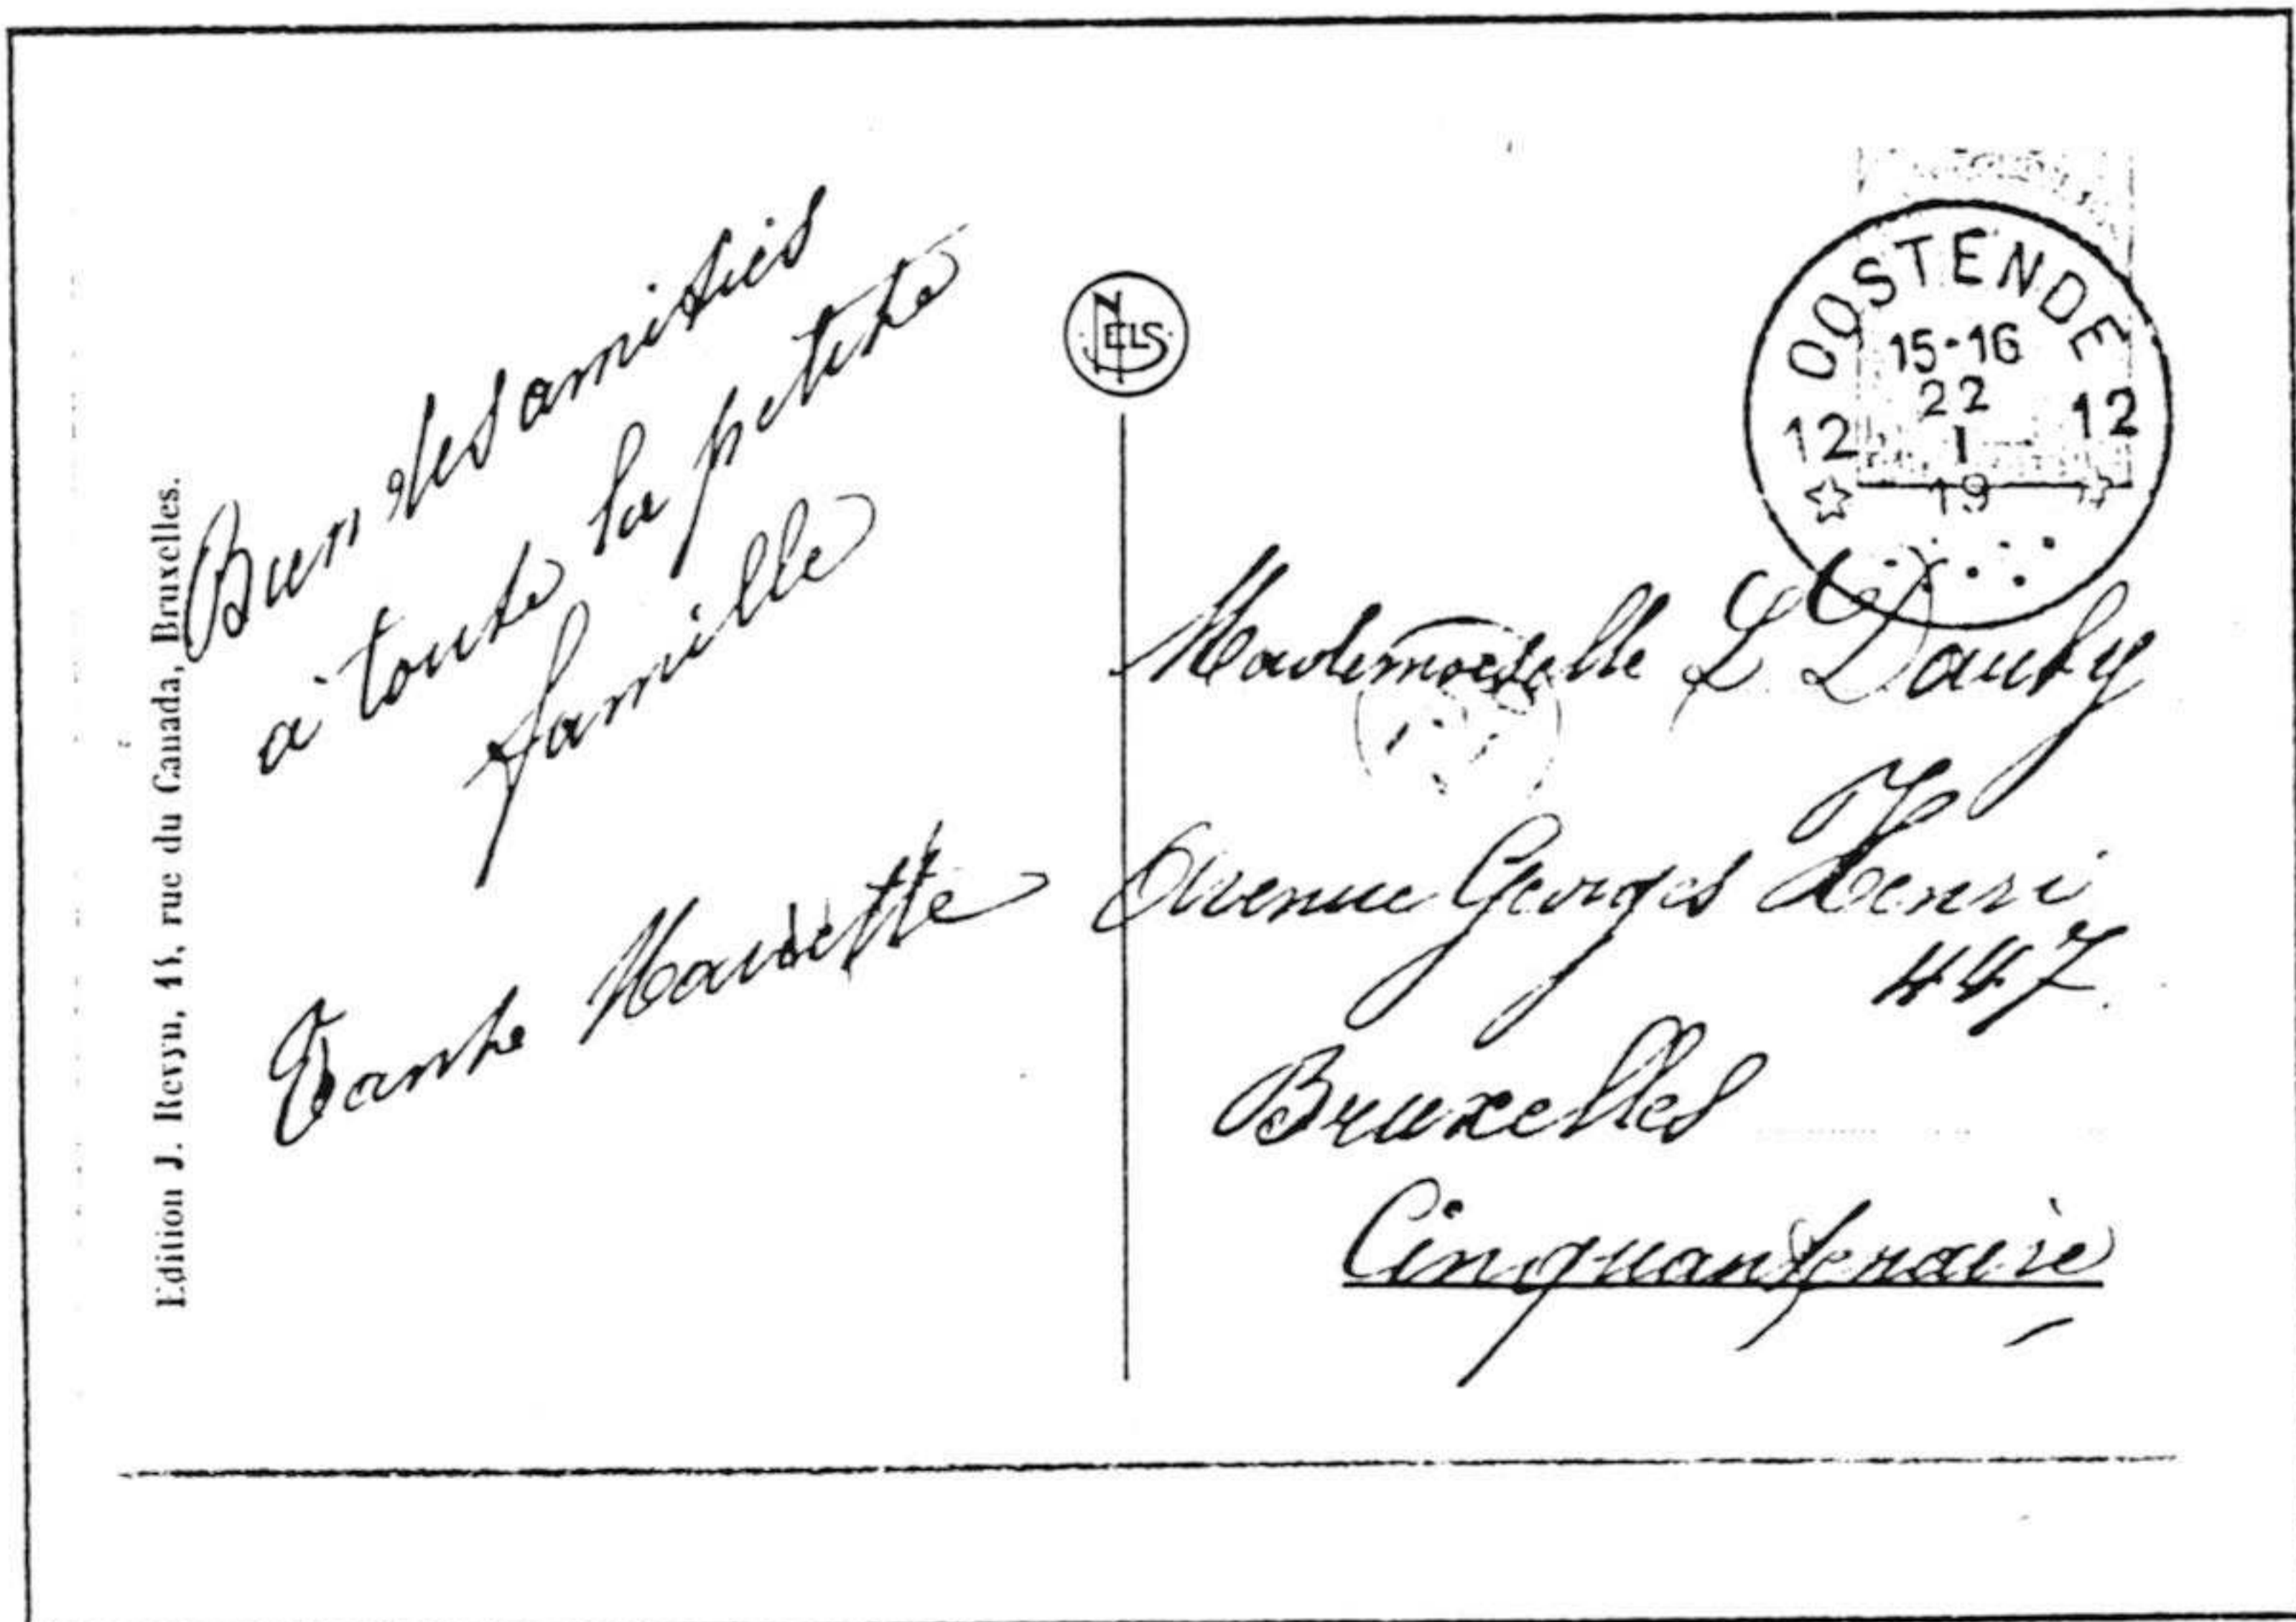 Edition J. Revyn, 45, rue du Canada, Bruxelles.
Bien des amitiés
à toute la petite
famille
Tante
NELS
OOSTENDE
15-16
22
12 I 12
19
Mademoiselle L
Avenue Georges Henri
447
Bruxelles
Cinquantenaire